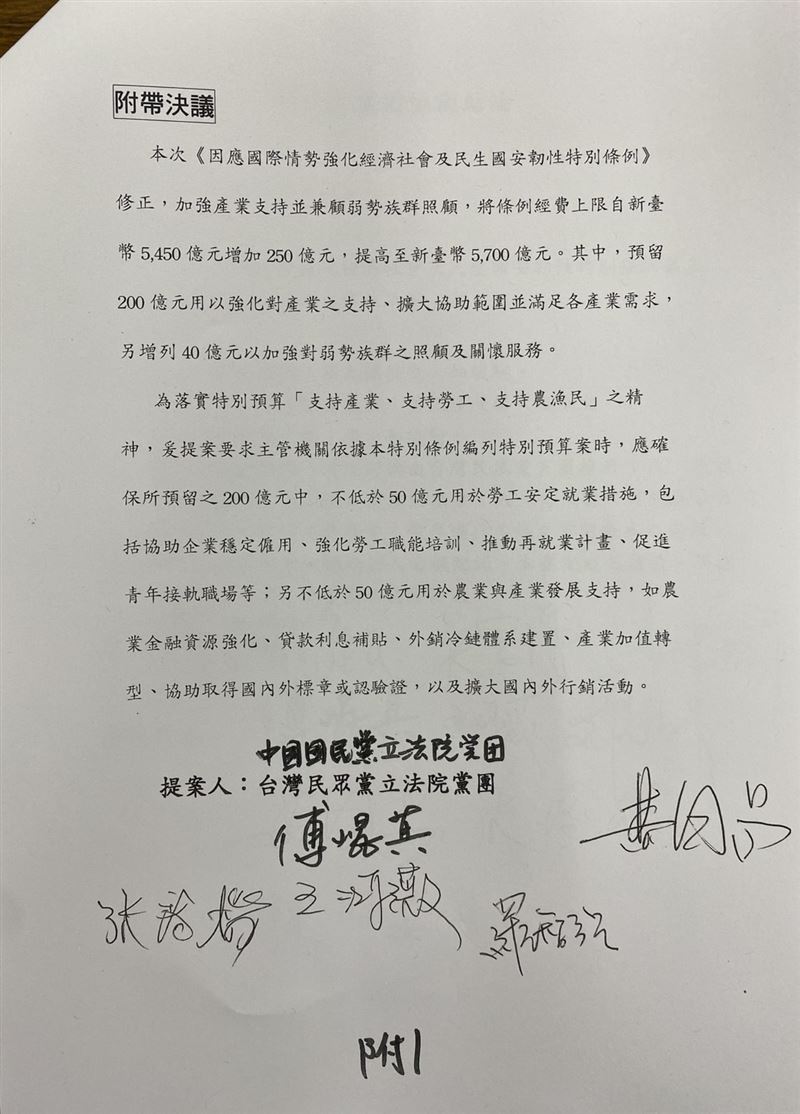 附帶決議
本次《因應國際情勢強化經濟社會及民生國安韌性特別條例》
修正，加強產業支持並兼顧弱勢族群照顧，將條例經費上限自新臺
幣 5,450 億元增加 250 億元，提高至新臺幣 5,700 億元。其中，預留
200 億元用以強化對產業之支持、擴大協助範圍並滿足各產業需求，
另增列 40 億元以加強對弱勢族群之照顧及關懷服務。
為落實特別預算「支持產業、支持勞工、支持農漁民」之精
神，爰提案要求主管機關依據本特別條例編列特別預算案時，應確
保所預留之 200 億元中，不低於 50 億元用於勞工安定就業措施，包
括協助企業穩定僱用、強化勞工職能培訓、推動再就業計畫、促進
青年接軌職場等；另不低於 50 億元用於農業與產業發展支持，如農
業金融資源強化、貸款利息補貼、外銷冷鏈體系建置、產業加值轉
型、協助取得國內外標章或認驗證，以及擴大國內外行銷活動。
中国国民黨立法院党团
提案人：台灣民眾黨立法院黨團
傅崐萁
王鴻薇
羅智強
附1